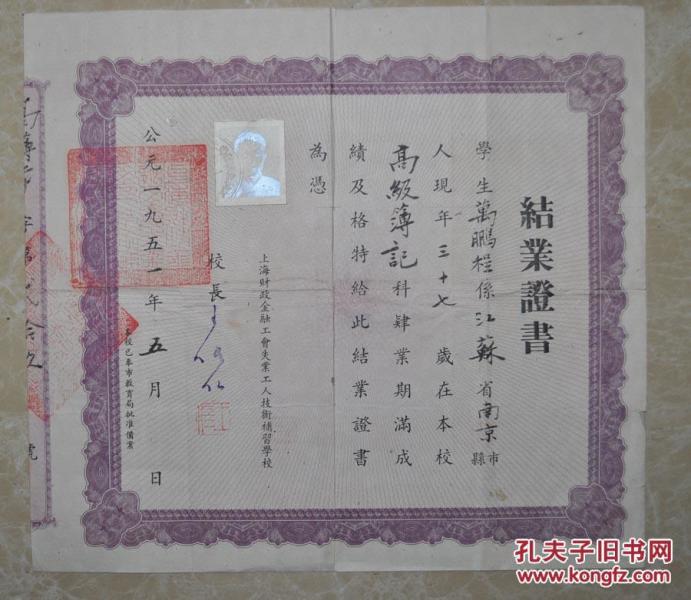 結業證書
學生萬鵬程係江蘇省南京市縣
人現年三十七歲在本校
高級簿記科肄業期滿成
績及格特給此結業證書
為憑
上海財政金融工會失業工人技術補習學校
校長
公元一九五一年五月 日
本校已奉市教育局批准備案
字第
拾
號
孔夫子旧书网
www.kongfz.com